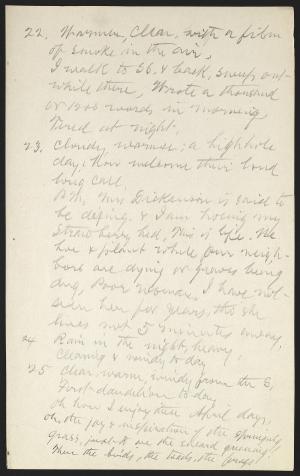 22. Warmer, Clear, with a film
of smoke in the air.
I walk to S6. & back, sweep out
while there, Wrote a thousand
or 1200 words in morning,
Tired at night.
23. Cloudy, warmer; a highhole
day; How welcome their loud
long call,
Mrs Dickenson is said to
be dying. & I am hoeing my
Strawberry bed, This is life. We
hoe & plant while our neigh-
bors are dying or graves being
dug, Poor woman. I have not
seen her for years, tho she
lives not 5 minutes away,
24 Rain in the night, heavy;
Clearing & windy to-day
25 Clear, warm, windy from the S,
First dandelion to-day
Oh how I enjoy these April days,
oh, the joy & inspiration of the springing
grass, just to see the sward greening!
Then the birds, the buds, the